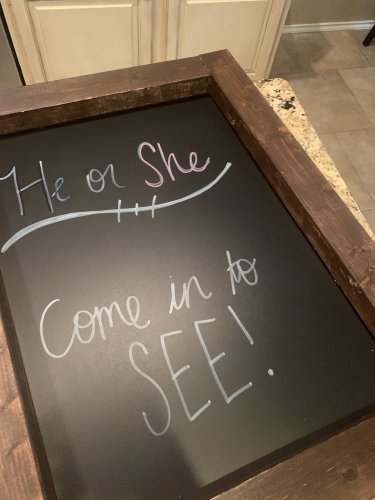 He or She
Come in to
SEE!